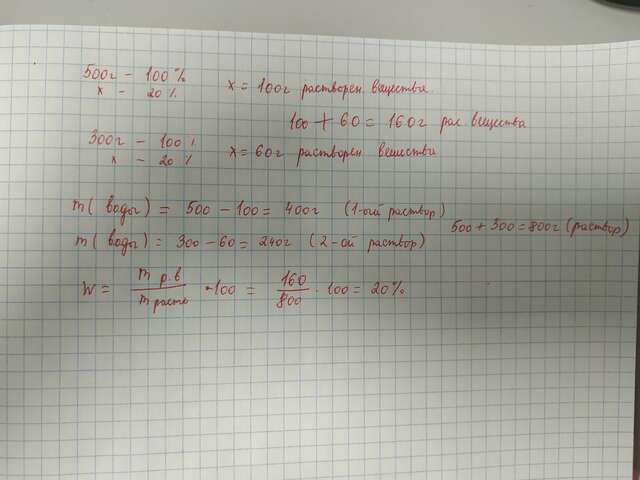 500г – 100%
x – 20%
x = 100г растворен. вещества.
100 + 60 = 160г рас. вещества
300г – 100%
x – 20%
x = 60г растворен вещества
m( воды) = 500 – 100 = 400г (1-ый раствор)
500 + 300 = 800г (раствор)
m( воды) = 300 – 60 = 240г (2-ой раствор)
W = m р.в / m раств · 100 = 160 / 800 · 100 = 20%